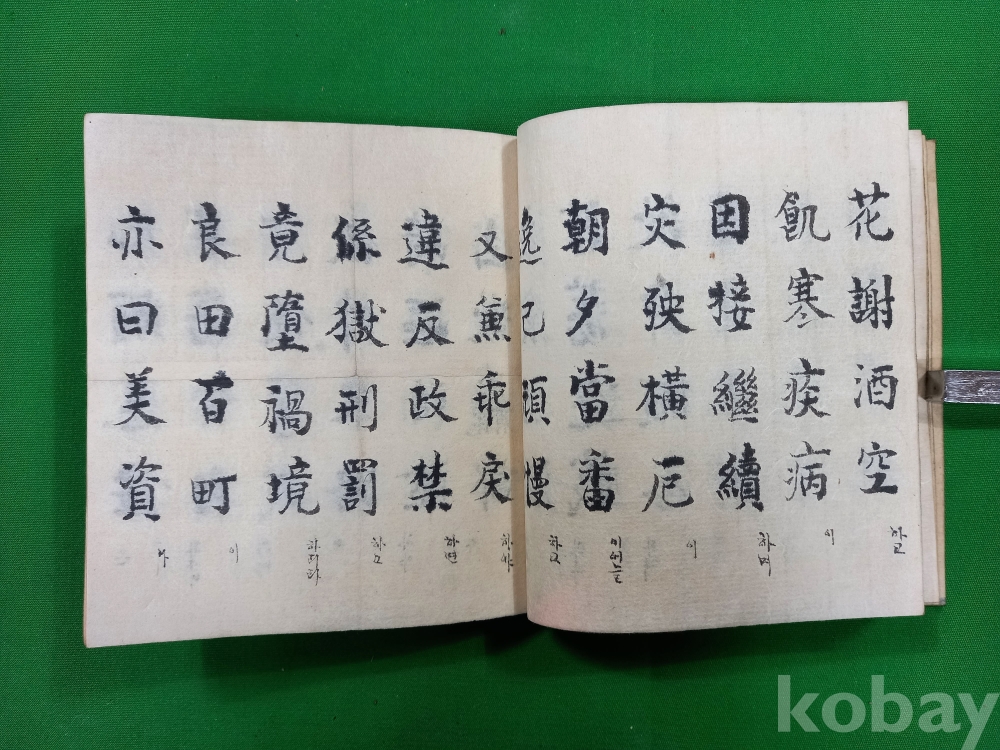 花謝酒空 하고
飢寒疾病 이
因接繼續 하며
灾殃橫厄 이
朝夕當番 이언늘
慢 하고
又兼乖戾 하야
違反政禁 하면
係獄刑罰 하고
竟墮禍境 하리라
良田百町 이
亦曰美資 나
kobay